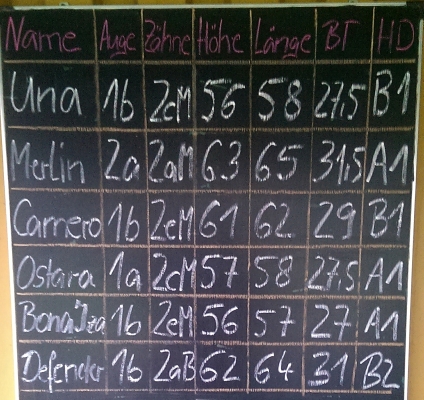 Name Auge Zähne Höhe Länge BT HD
Una 1b 2cM 56 58 27,5 B1
Merlin 2a 2aM 63 65 31,5 A1
Carnero 1b 2eM 61 62 29 B1
Ostara 1a 2cM 57 58 27,5 A1
1b 2eM 56 57 27 A1
Defender 1b 2aB 62 64 31 B2